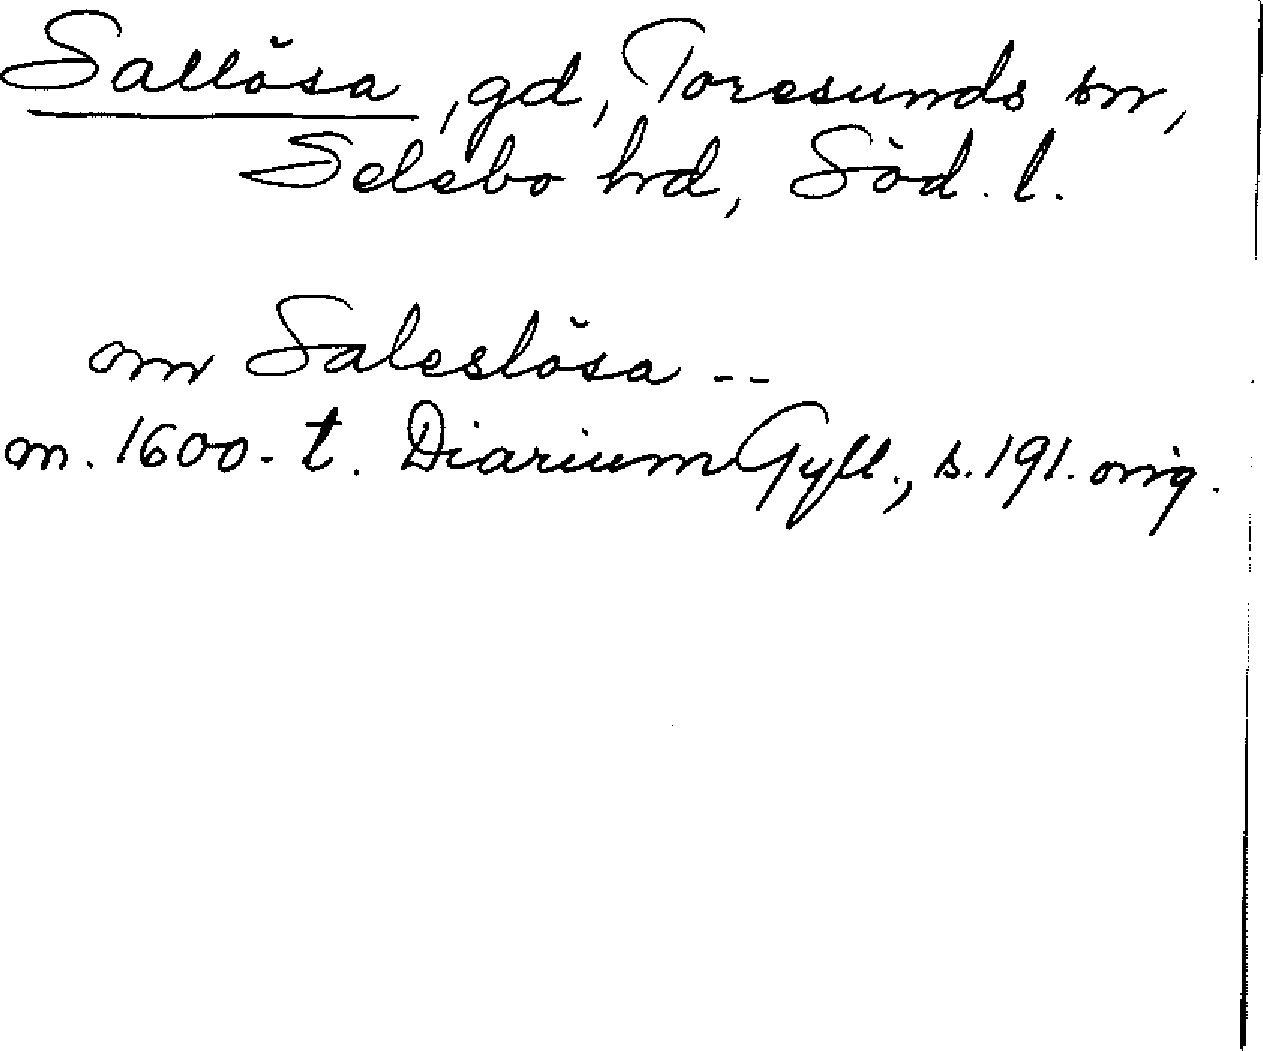 Sallösa, gd, Toresunds sn,
Selebo hd, Söd. l.
om Saleslösa --
m. 1600-t. Diarium Gyll., s. 191. orig.